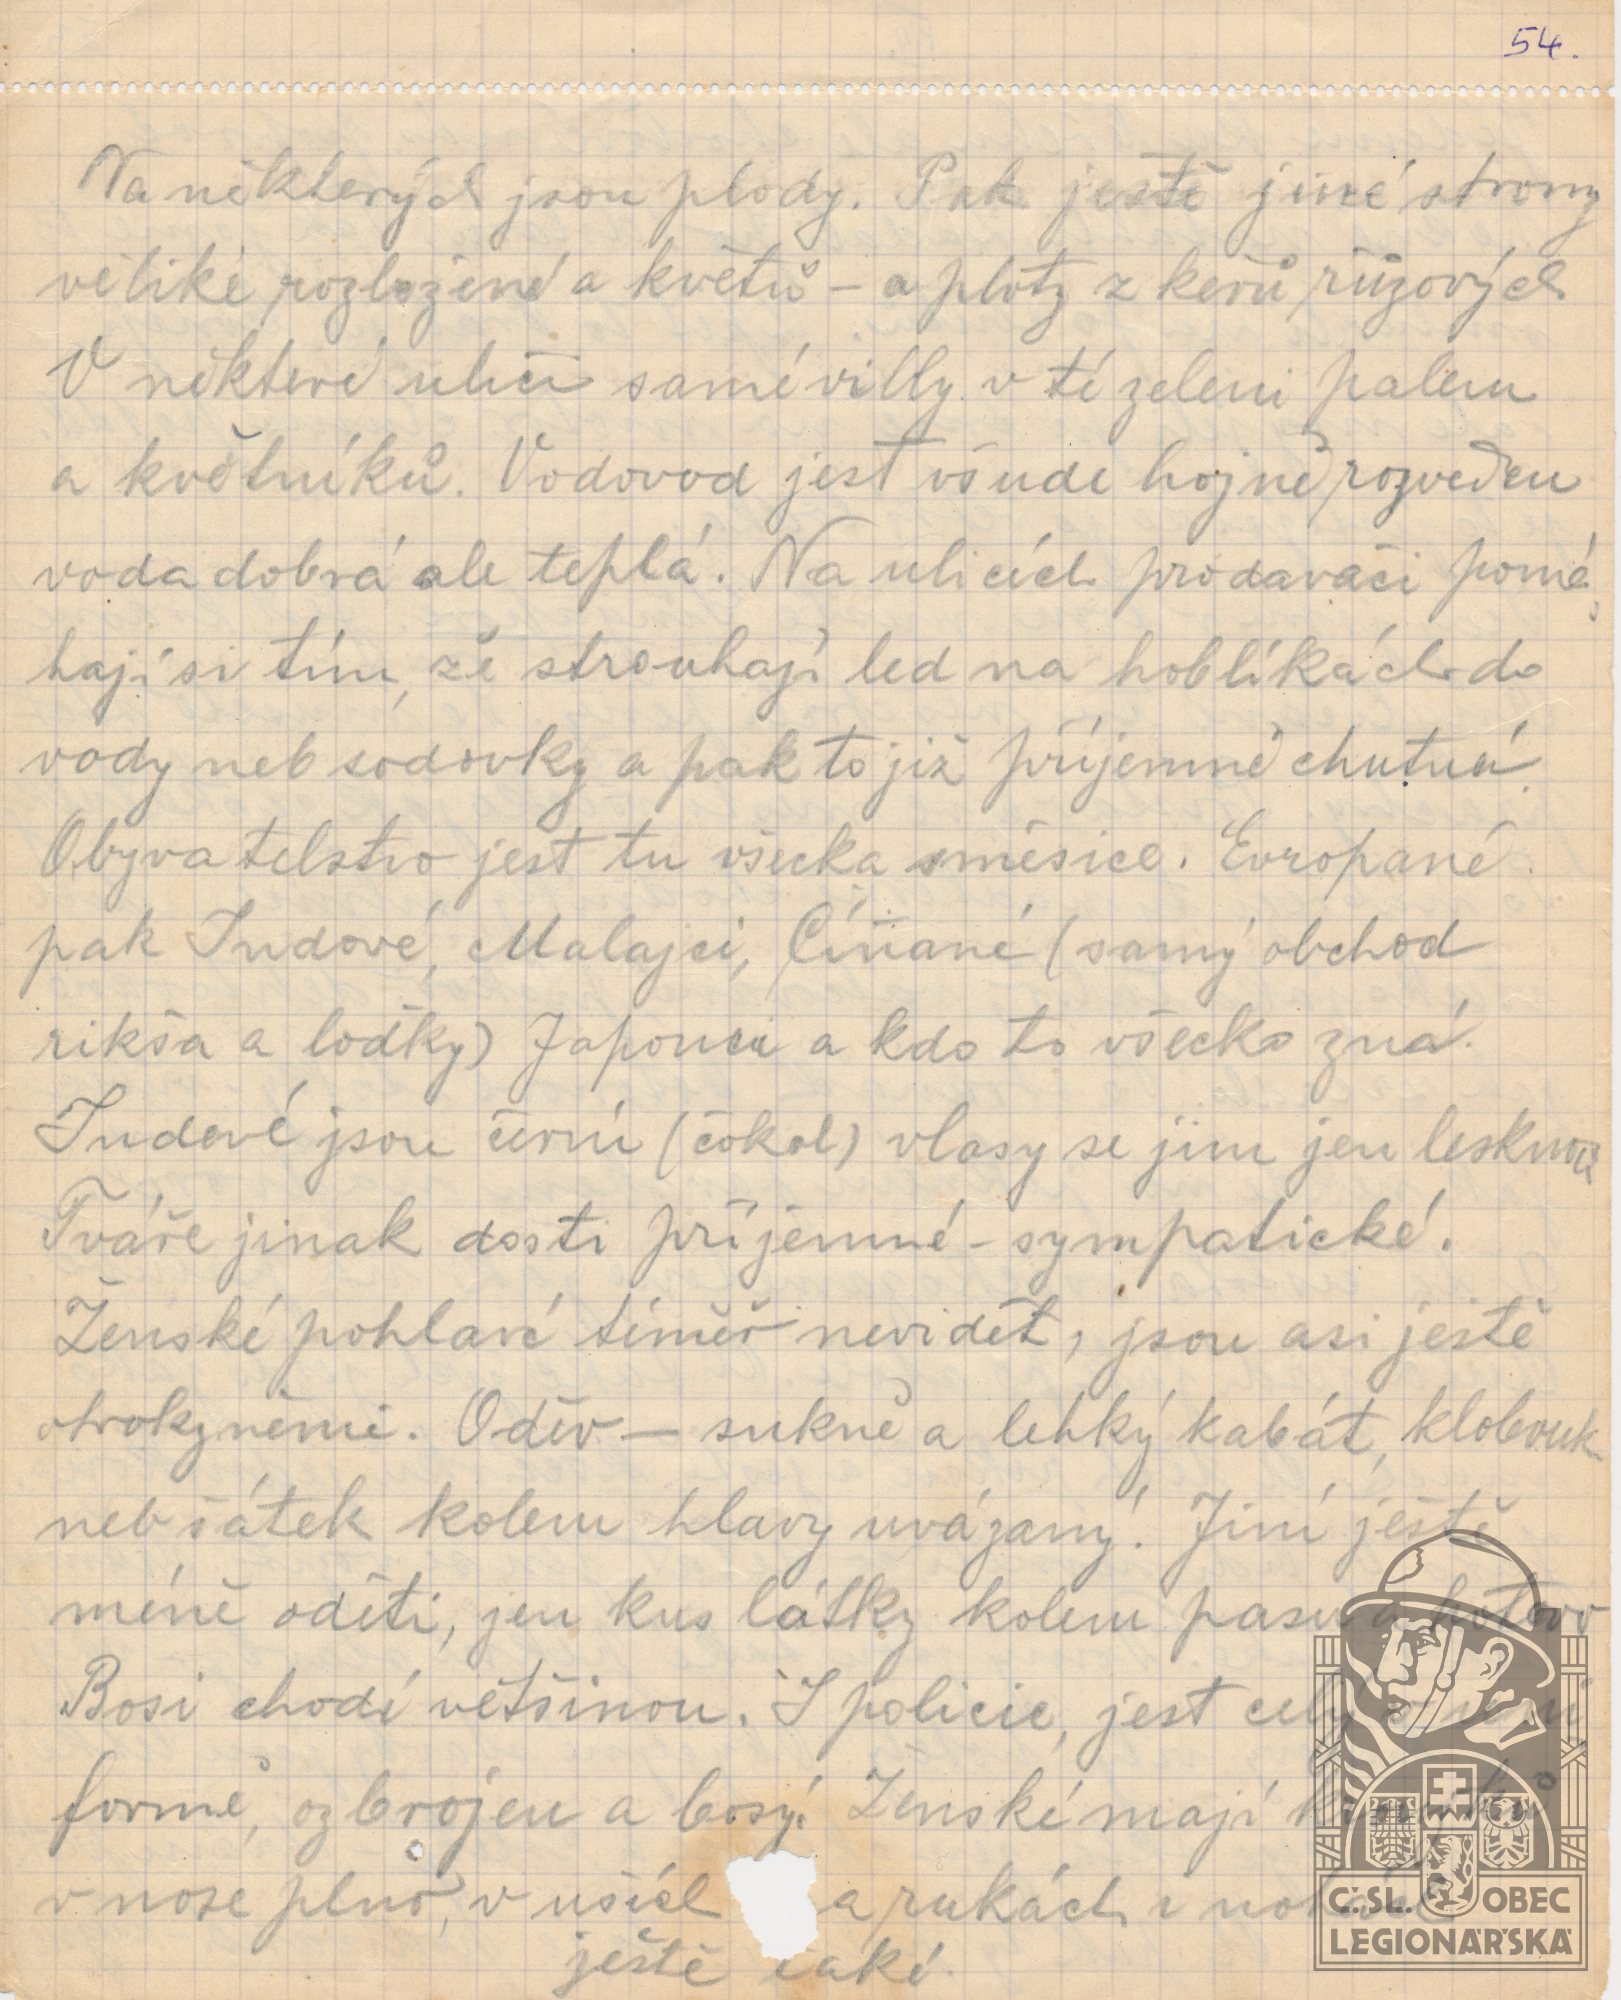 54.
Na některých jsou plody. Pak ještě jiné stromy
veliké rozložené a květů – a ploty z keřů růžových
V některé ulici samé villy v té zeleni palem
a květníků. Vodovod jest všude hojně rozveden
voda dobrá ale teplá. Na ulicích prodavači pomá
hají si tím, že strouhají led na hoblíkách do
vody neb sodovky a pak to již příjemně chutná.
Obyvatelstvo jest tu všecka směsice. Evropané
pak Indové, Malajci, Číňané (samý obchod
rikša a lodky) Japonci a kdo to všecko zná.
Indové jsou černí (čokol) vlasy se jim jen lesknou
Tváře jinak dosti příjemné – sympatické.
Ženské pohlaví téměř nevidět, jsou asi ještě
otrokyněmi. Oděv – sukně a lehký kabát, klobouk
neb šátek kolem hlavy uvázaný. Jiní ještě
méně oděti, jen kus látky kolem pasu a hotovo
Bosi chodí většinou. I policie, jest celý v uni
formě, ozbrojen a bosý. Ženské mají kroužků
v nose plno, v uších a rukách i nohách
ještě také.
ČSL. OBEC
LEGIONÁŘSKÁ